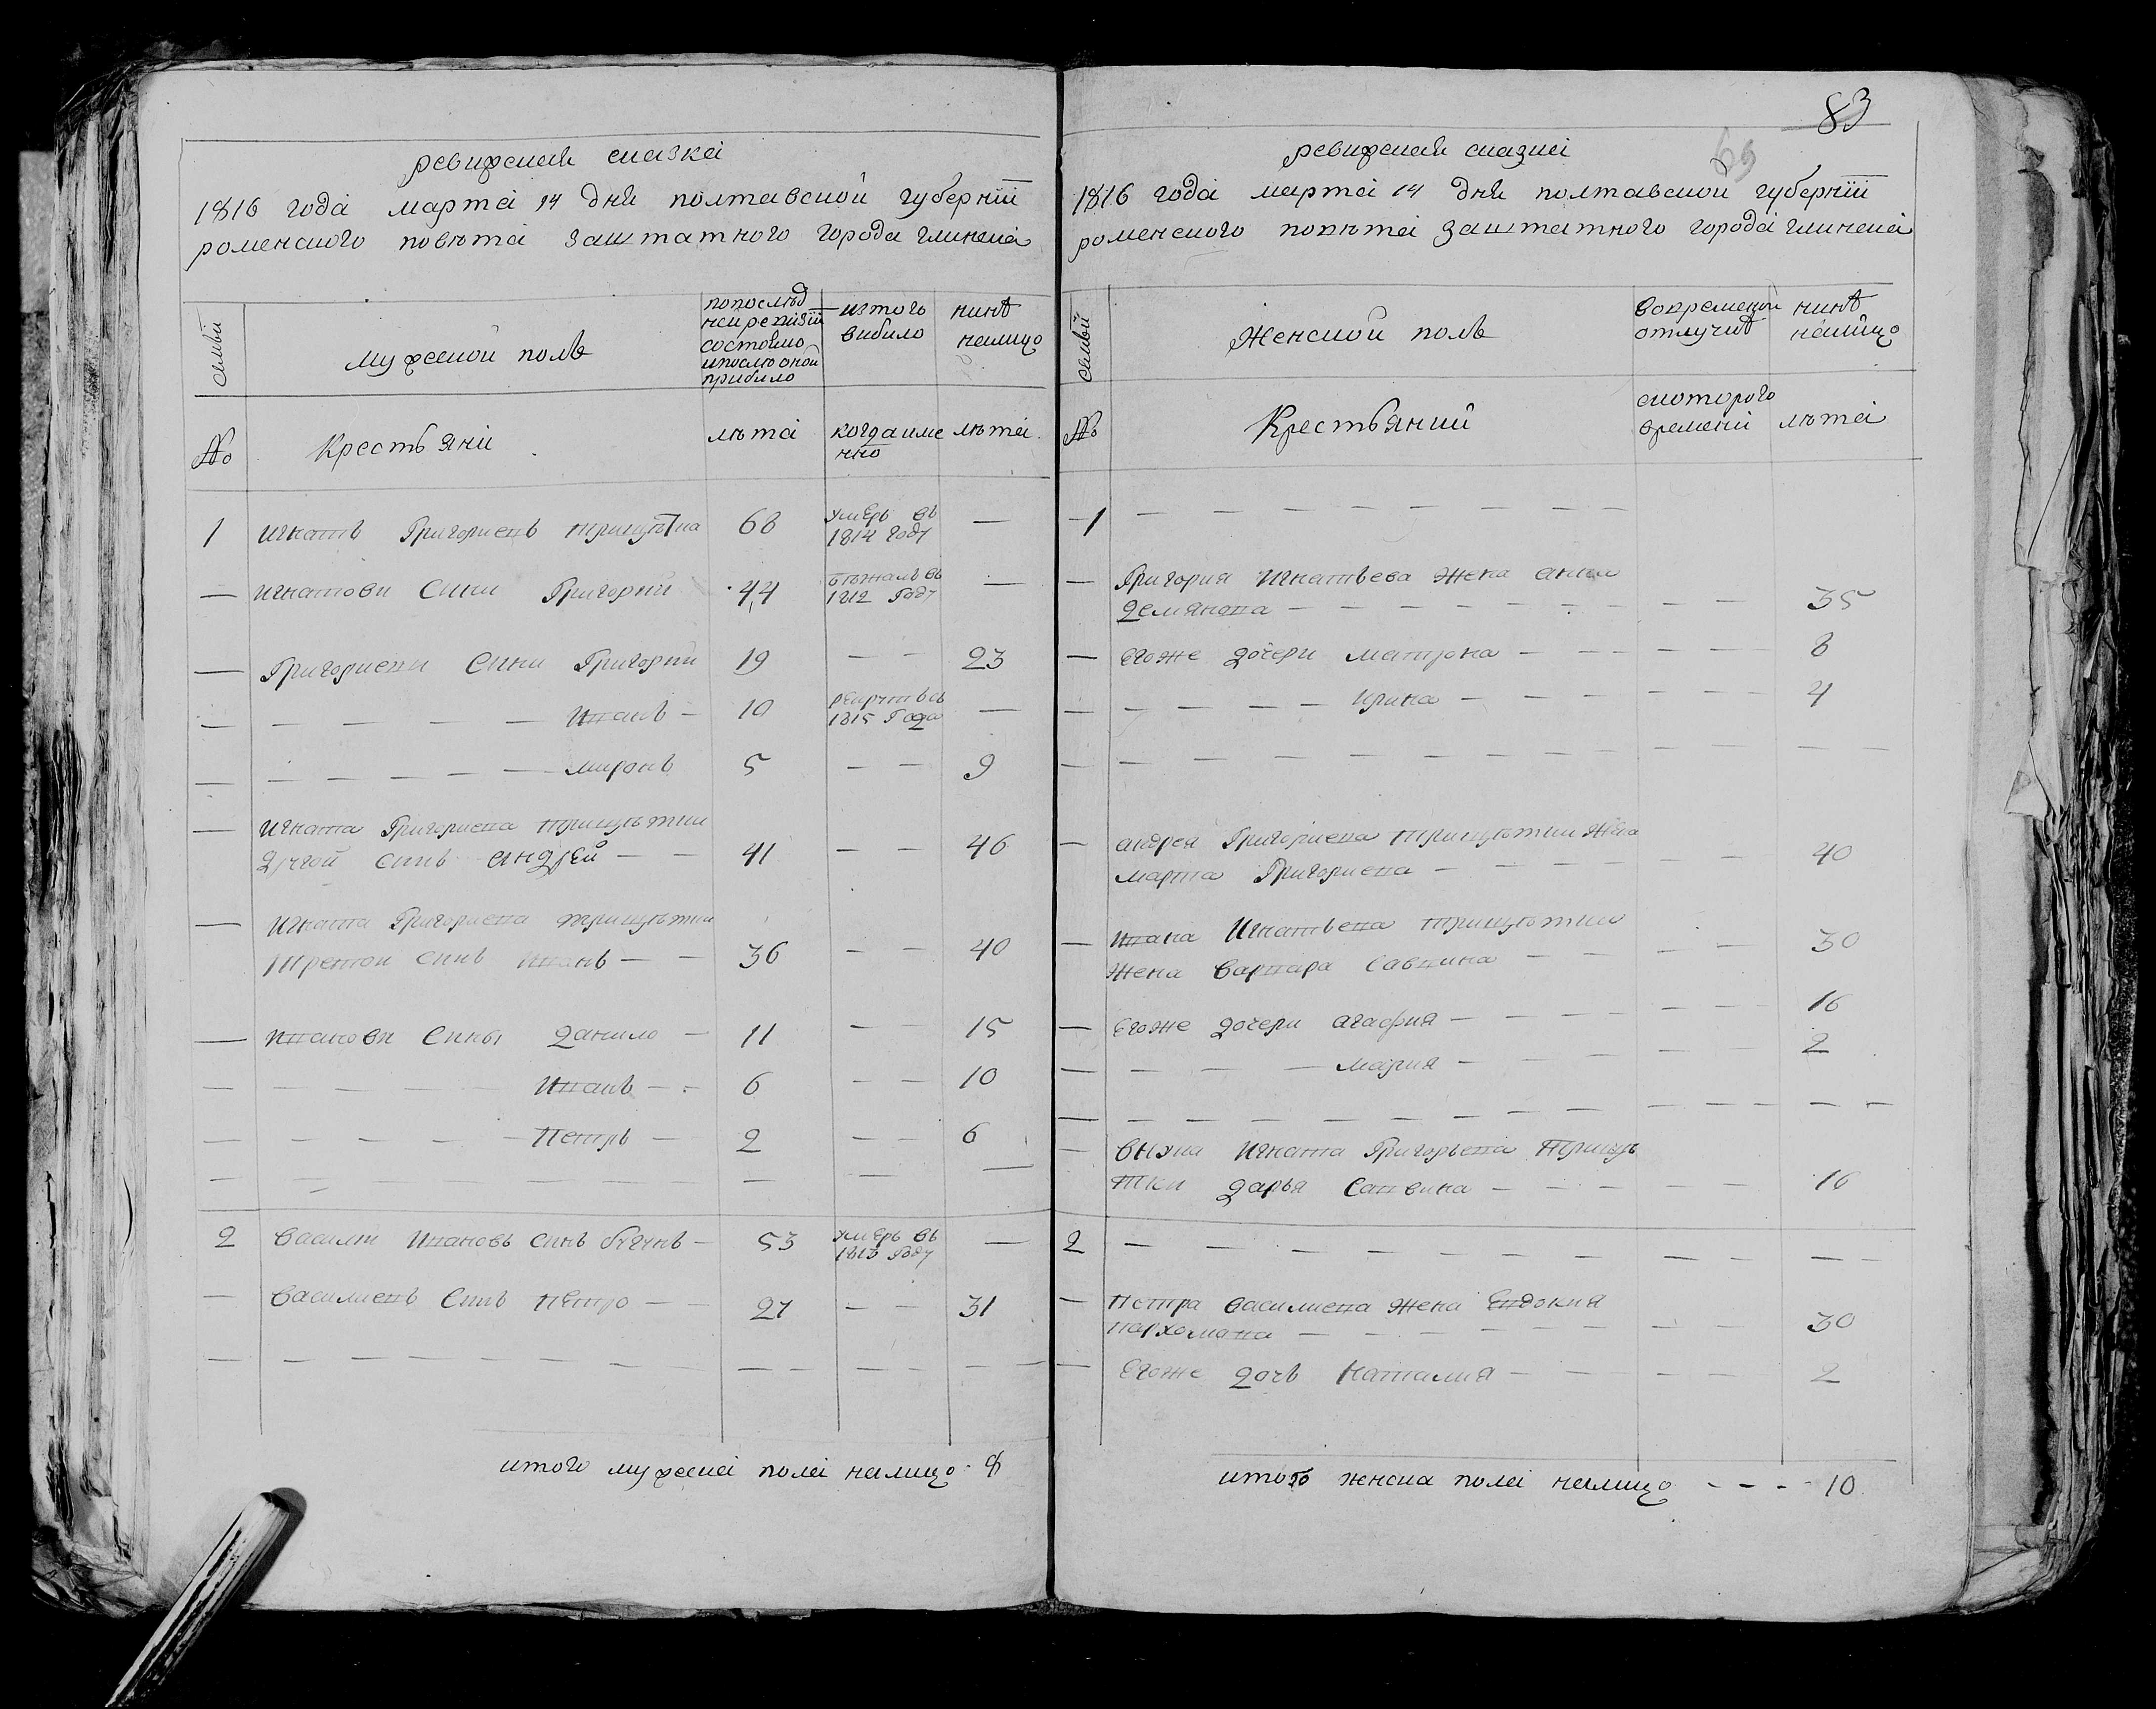 ревижская сказка
1816 года марта 14 дня полтавской губернїи
роменского повѣта заштатного города глинска
семьи
мужеской полъ
попослѣд
ней ревизїи
состояло
ипослѣ оной
прибило
изтого
вибило
нинѣ
налицо
№
Крестьяни
лѣта
когда име
нно
лѣта
1 Игнатъ Григориевъ трищѣтка 68 умеръ въ 1814 году —
— Игнатови Сини Григорий 44 бѣжалъ въ 1812 Году —
— Григориеви Сини Григорий 19 — — 23
— — — — — — Иванъ — 10 рекрутъ въ 1815 Года —
— — — — — — миронъ 5 — — 9
— Игната Григориева трищѣтки
другой синъ андрей — — 41 — — 46
— Игната Григориева трищѣтки
третой синъ Иванъ — — 36 — — 40
— Иванови Сины Данило — 11 — — 15
— — — — — Иванъ — — 6 — — 10
— — — — — Петръ — 2 — — 6
2 Василий Ивановъ синъ бугунъ — 53 умеръ въ 1813 Году —
— Василиевъ Синъ Петро — — 27 — — 31
итого мужеска пола налицо 8
83
69
ревижская сказка
1816 года марта 14 дня полтавской губернїи
роменского повѣта заштатного города глинска
семьи
Женской полъ
вовременой
отлучкѣ
нинѣ
налицо
№
Крестьяний
скоторого
времени
лѣта
1 — — — — — — — —
— Григория Игнатьева жена анна
Демянова — — — — — — — — 35
— Егоже дочери матрона — — — — — 8
— — — — — Ирина — — — — — — 4
— андрея Григориева трищѣтки жена
марта Григориева — — — — — — 40
— Ивана Игнатьева трищѣтки
жена Варвара Саввина — — — — — 30
— Егоже дочери агафия — — — — — — 16
— — — — — мария — — — — — — 2
— внука Игната Григорьева Трищѣ
тки дарья Саввина — — — — — 16
2 — — — — — — — — — — —
— Петра василиева жена Евдокия
пархомова — — — — — — — — 30
— Егоже дочь Наталия — — — — — 2
итого женска пола налицо — — — 10